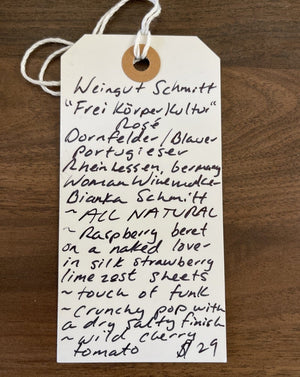 Weingut Schmitt
"Frei Körper Kultur"
Rosé
Dornfelder/Blauer
Portugieser
Rheinhessen, Germany
Woman Winemaker
Bianka Schmitt
~ ALL NATURAL
~ Raspberry beret
on a naked lover
in silk strawberry
lime zest sheets
~ touch of funk
~ Crunchy pop with
a dry salty finish
~ wild cherry
tomato $29